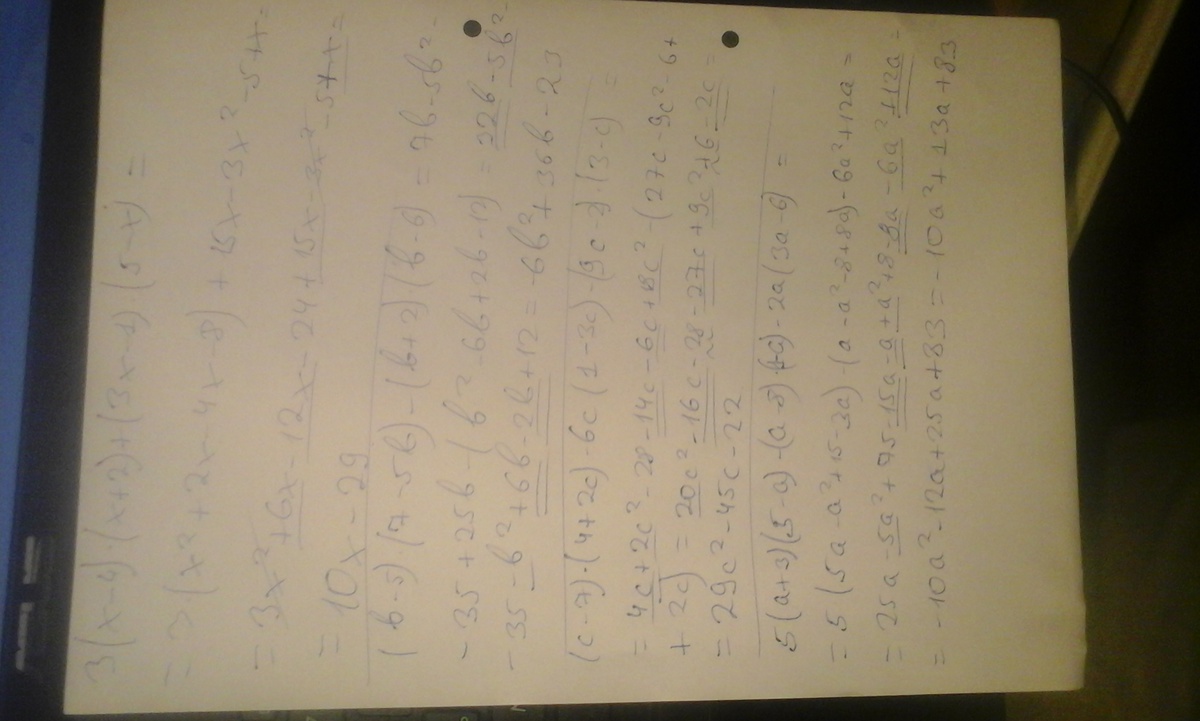 3(x-4)·(x+2)+(3x-1)·(5-x)=
=3(x²+2x-4x-8)+15x-3x²-5+x=
=3x²+6x-12x-24+15x-3x²-5+x=
=10x-29
(b-5)·(7-5b)-(b+2)(b-6)=7b-5b²-
-35+25b-(b²-6b+2b-12)=32b-5b²-
-35-b²+6b-2b+12=-6b²+36b-23
(c-7)·(4+2c)-6c(1-3c)-(9c-2)·(3-c)=
=4c+2c²-28-14c-6c+18c²-(27c-9c²-6+
+2c)=20c²-16c-28-27c+9c²+6-2c=
=29c²-45c-22
5(a+3)(5-a)-(a-8)(1-a)-2a(3a-6)=
=5(5a-a²+15-3a)-(a-a²-8+8a)-6a²+12a=
=25a-5a²+75-15a-a+a²+8-8a-6a²+12a=
=-10a²-12a+25a+83=-10a²+13a+83